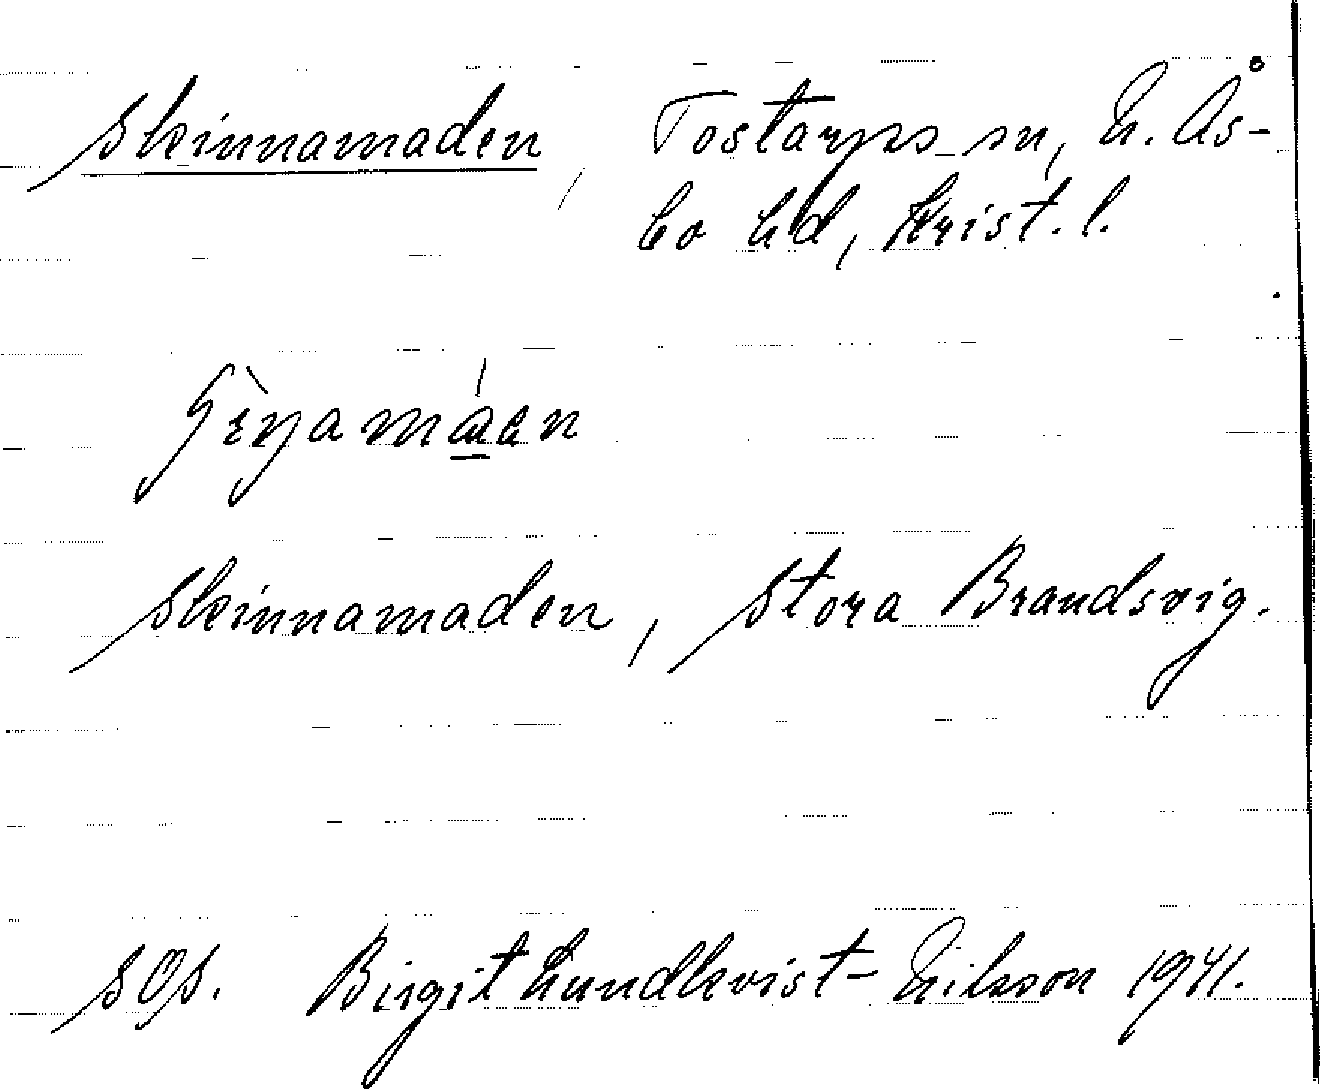 Skinnamaden, Tostarps sn, N. Ås-
bo hd, Krist. l.
Skinnamaden, Stora Brandsvig.
SOS. Birgit Lundkvist-Nilsson 1941.